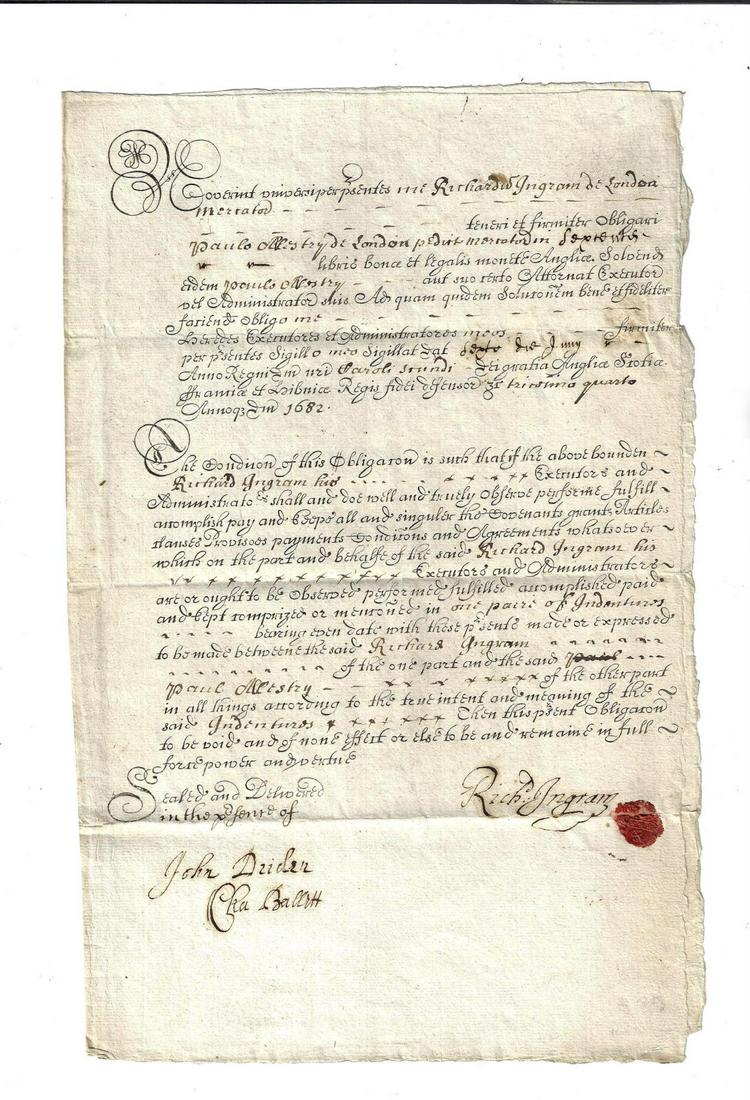 Noverint universi per p'sentes me Richardu Ingram de London
Mercator
teneri et firmiter Obligari
Paulo Allestry de London pedict mercator in
libris bonæ et legalis monetæ Angliæ Solvend
eidem Paulo Allestry aut suo certo Attornat Executor
vel Administrator suis Ad quam quidem Solucoñem bene et fideliter
faciend Obligo me
Heredes Executores et Administratores meos firmiter
per p'sentes Sigillo meo Sigillat Dat Sexto die
Anno Regni Dni nri Caroli secundi Dei gratia Angliæ Scotiæ
Franciæ et Hibniæ Regis fidei defensor &c tricesimo quarto
Annoq Dni 1682.
The Condicon of this Obligacon is such that if the above bounden
Richard Ingram his Executors and
Administrators shall and doe well and truely observe performe fulfill
accomplish pay and keepe all and singuler the Covenants grants Articles
clauses Provisoes payments Condicons and Agreements whatsoever
which on the part and behalfe of the said Richard Ingram his
Executors and Administrators
are or ought to be observed performed fulfilled accomplished paid
and kept comprized or mencoñed in one paire of Indentures
bearing even date with these p'sents made or expressed
to be made betweene the said Richard Ingram
of the one part and the said Paul
Paul Allestry of the other part
in all things according to the true intent and meaning of the
said Indentures Then this p'sent Obligacon
to be void and of none effect or else to be and remaine in full
force power and vertue
Sealed and Delivered
in the p'sence of
Rich: Ingram
John Driden
Cha Ballett